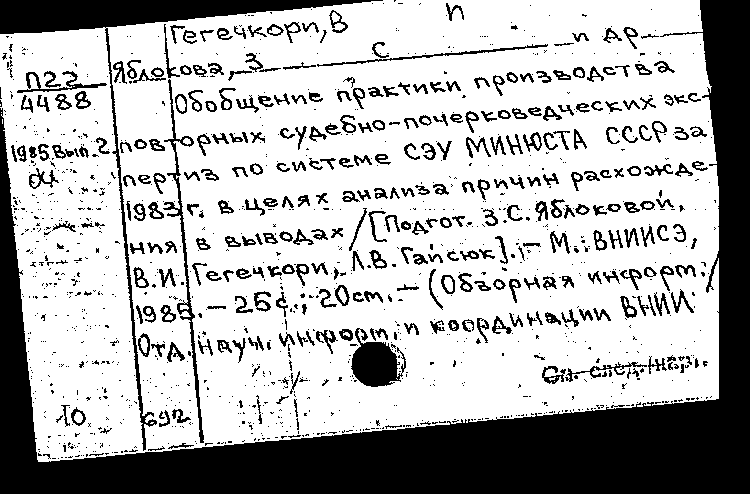 Гегечкори, В И
Яблокова, З С и др.
П22
4488
Обобщение практики производства
1985 Вып. 2.
повторных судебно-почерковедческих экс-
пертиз по системе СЭУ МИНЮСТА СССР за
1983 г. в целях анализа причин расхожде-
ния в выводах / [Подгот. З.С. Яблоковой,
В.И. Гегечкори, Л.В. Гайсюк]. - М.: ВНИИСЭ,
1985. - 25 с.; 20 см. - (Обзорная информ. /
Отд. науч. информ. и координации ВНИИ
См. след. кар.
10 692